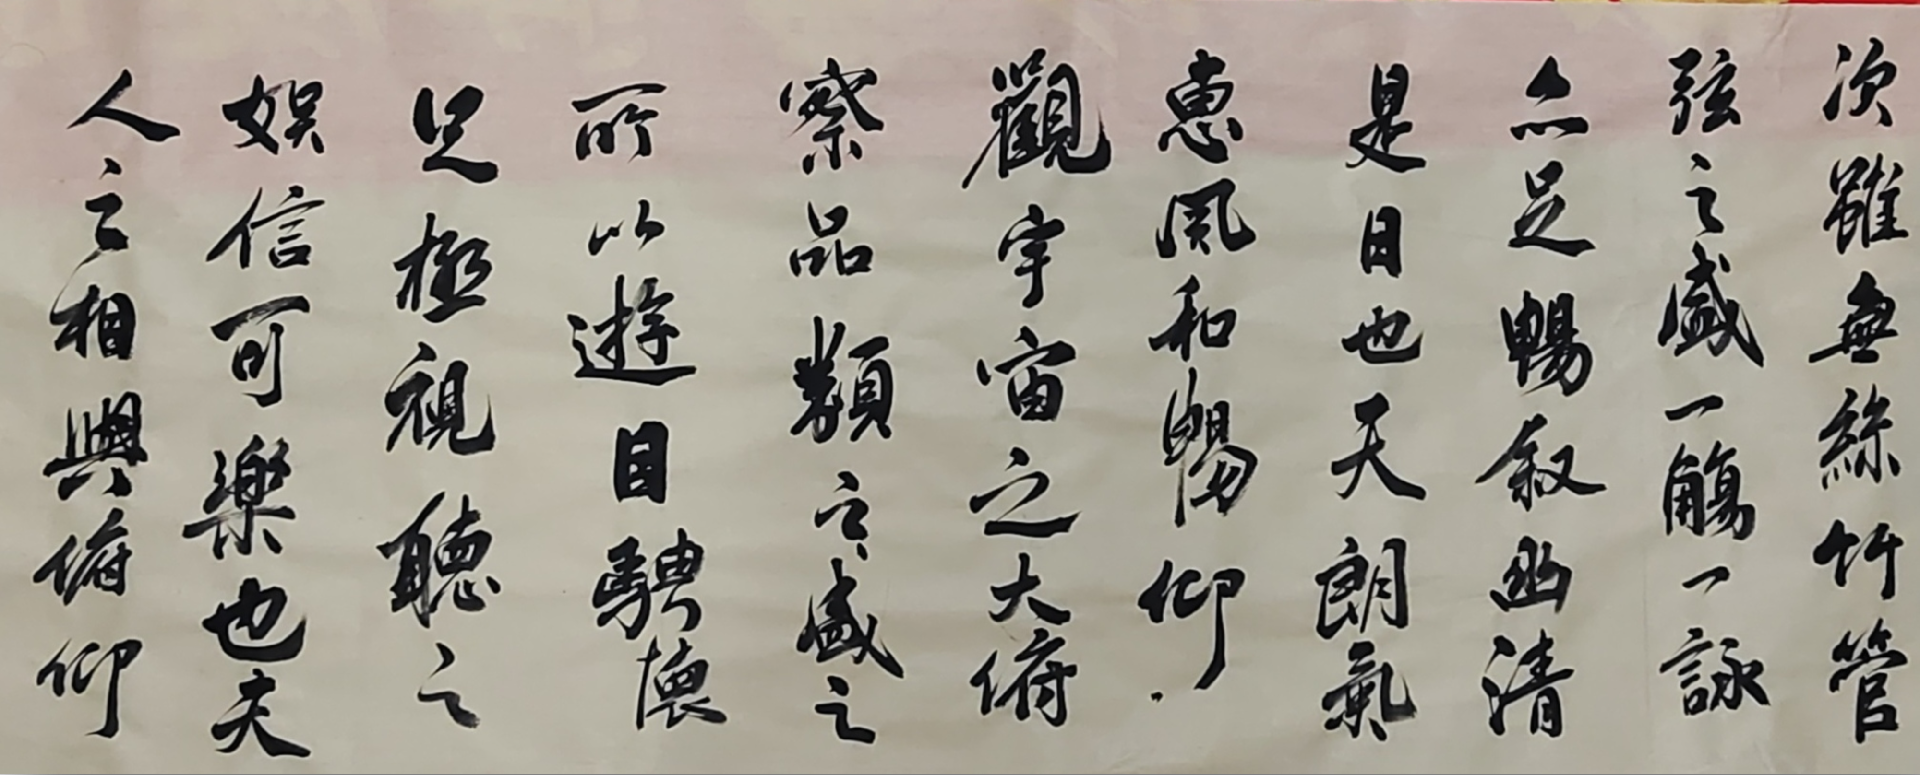 次雖無絲竹管
弦之盛一觴一詠
亦足暢叙幽清
是日也天朗氣
惠風和暢仰
觀宇宙之大俯
察品類之盛之
所以遊目騁懷
足極視聽之
娛信可樂也夫
人之相與俯仰